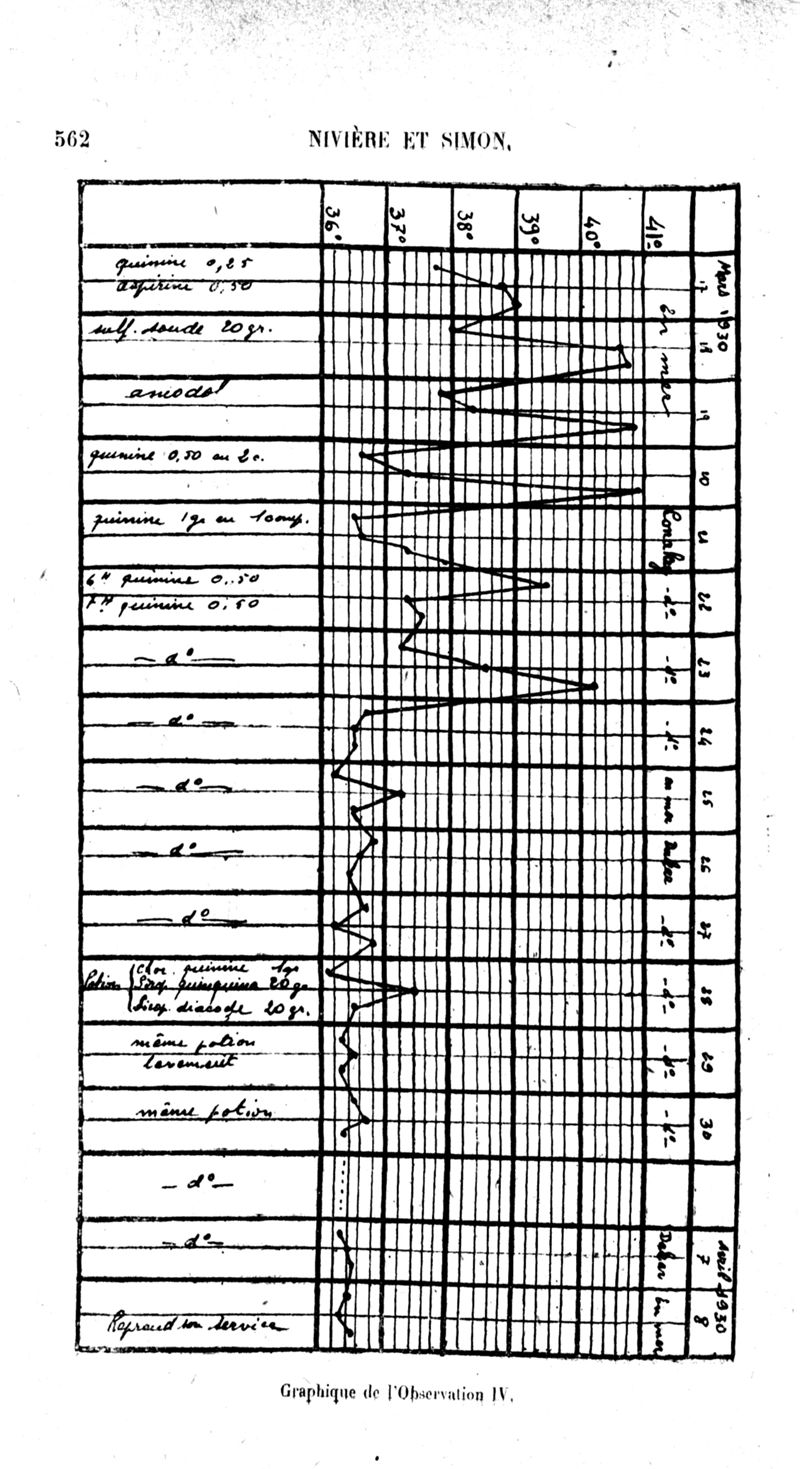 562
NIVIÈRE ET SIMON.
36° 37° 38° 39° 40° 41°
Mars 1930
En mer
17
quinine 0,25
aspirine 0,50
18
sulf. soude 20 gr.
19
amodol
20
quinine 0,50 en 2c.
21
quinine 1gr en 1 comp.
22
-d°-
6H quinine 0,50
7H quinine 0,50
23
-d°-
— d° —
24
-d°-
— d° —
25
en mer
— d° —
26
Dakar
— d° —
27
-d°-
— d° —
28
-d°-
Potion
Chlor. quinine 1gr
Sirop quinquina 20 gr
Sirop diacode 20 gr.
29
-d°-
même potion
lavement
30
-d°-
même potion
— d° —
Avril 1930
7
Dakar
— d° —
8
En mer
Reprend son service
Graphique de l'Observation IV.